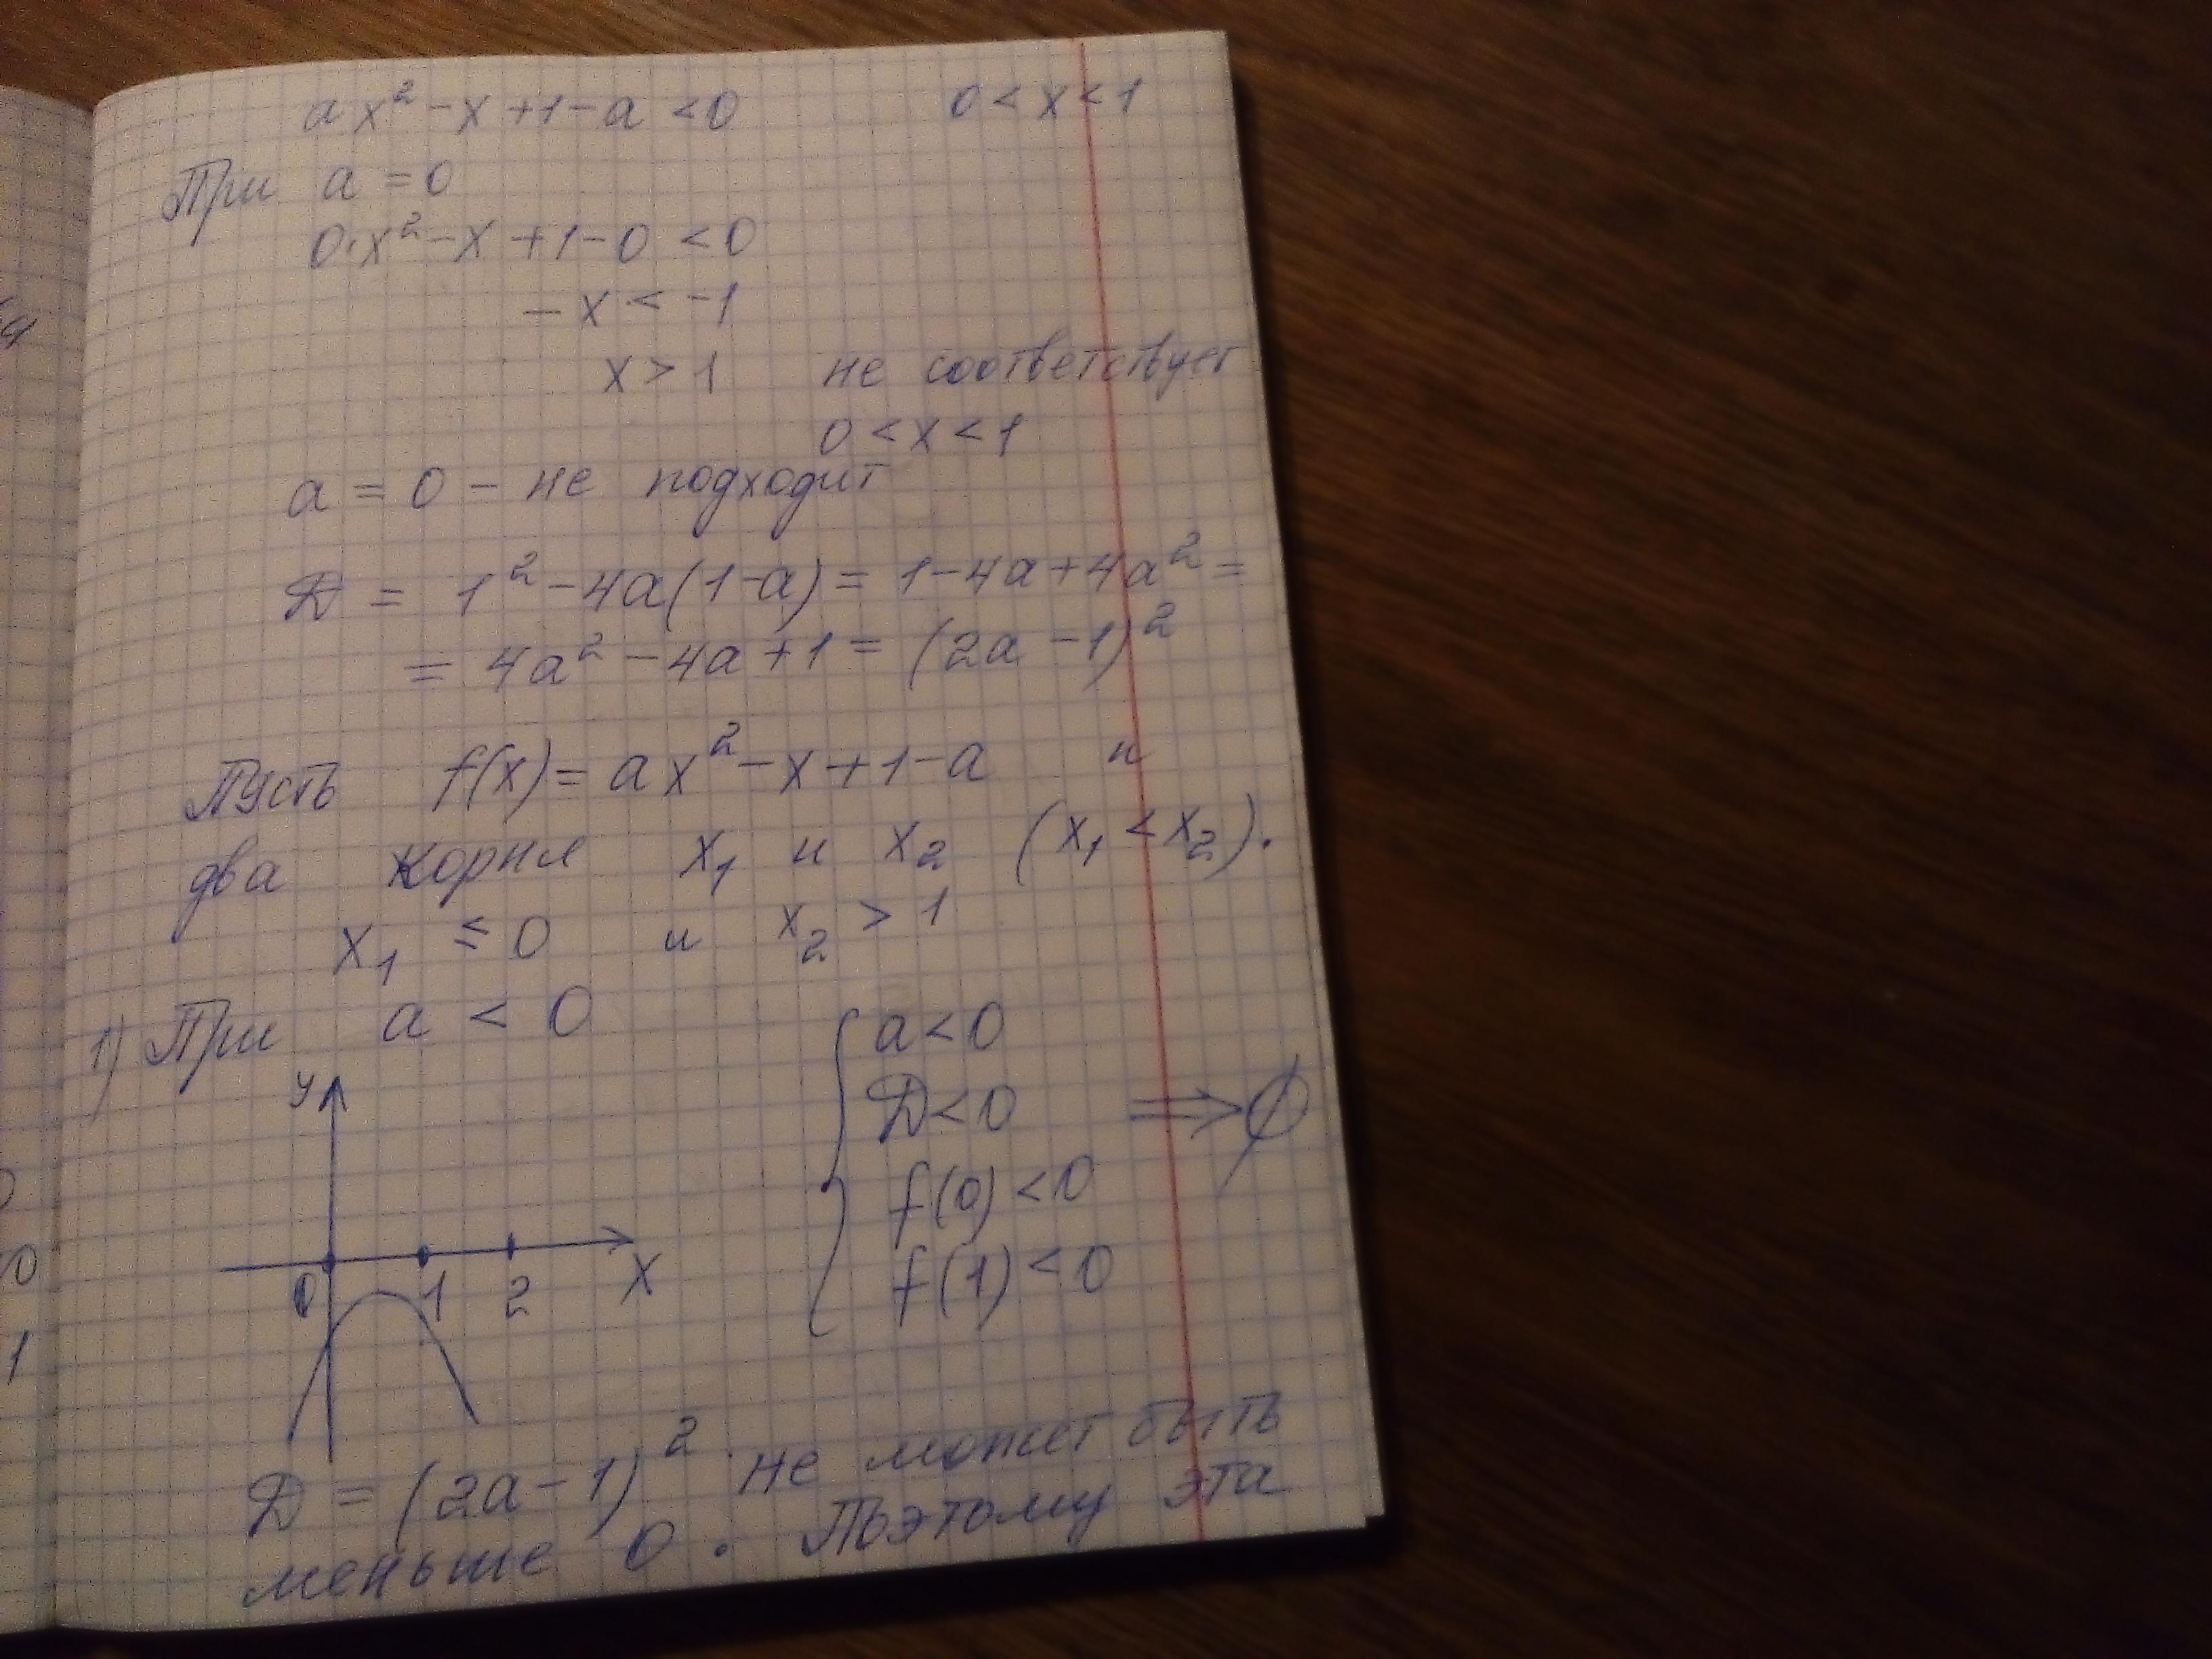 ax² - x + 1 - a < 0 0 < x < 1
При a = 0
0·x² - x + 1 - 0 < 0
- x < -1
x > 1 не соответствует
0 < x < 1
a = 0 - не подходит
Д = 1² - 4a(1-a) = 1 - 4a + 4a² =
= 4a² - 4a + 1 = (2a - 1)²
Пусть f(x) = ax² - x + 1 - a и
два корня x₁ и x₂ (x₁ < x₂).
x₁ ≤ 0 и x₂ > 1
1) При a < 0
a < 0
y
Д < 0 ⇒ ∅
f(0) < 0
f(1) < 0
0 1 2 x
Д = (2a - 1)² не может быть
меньше 0. Поэтому эта
0
1